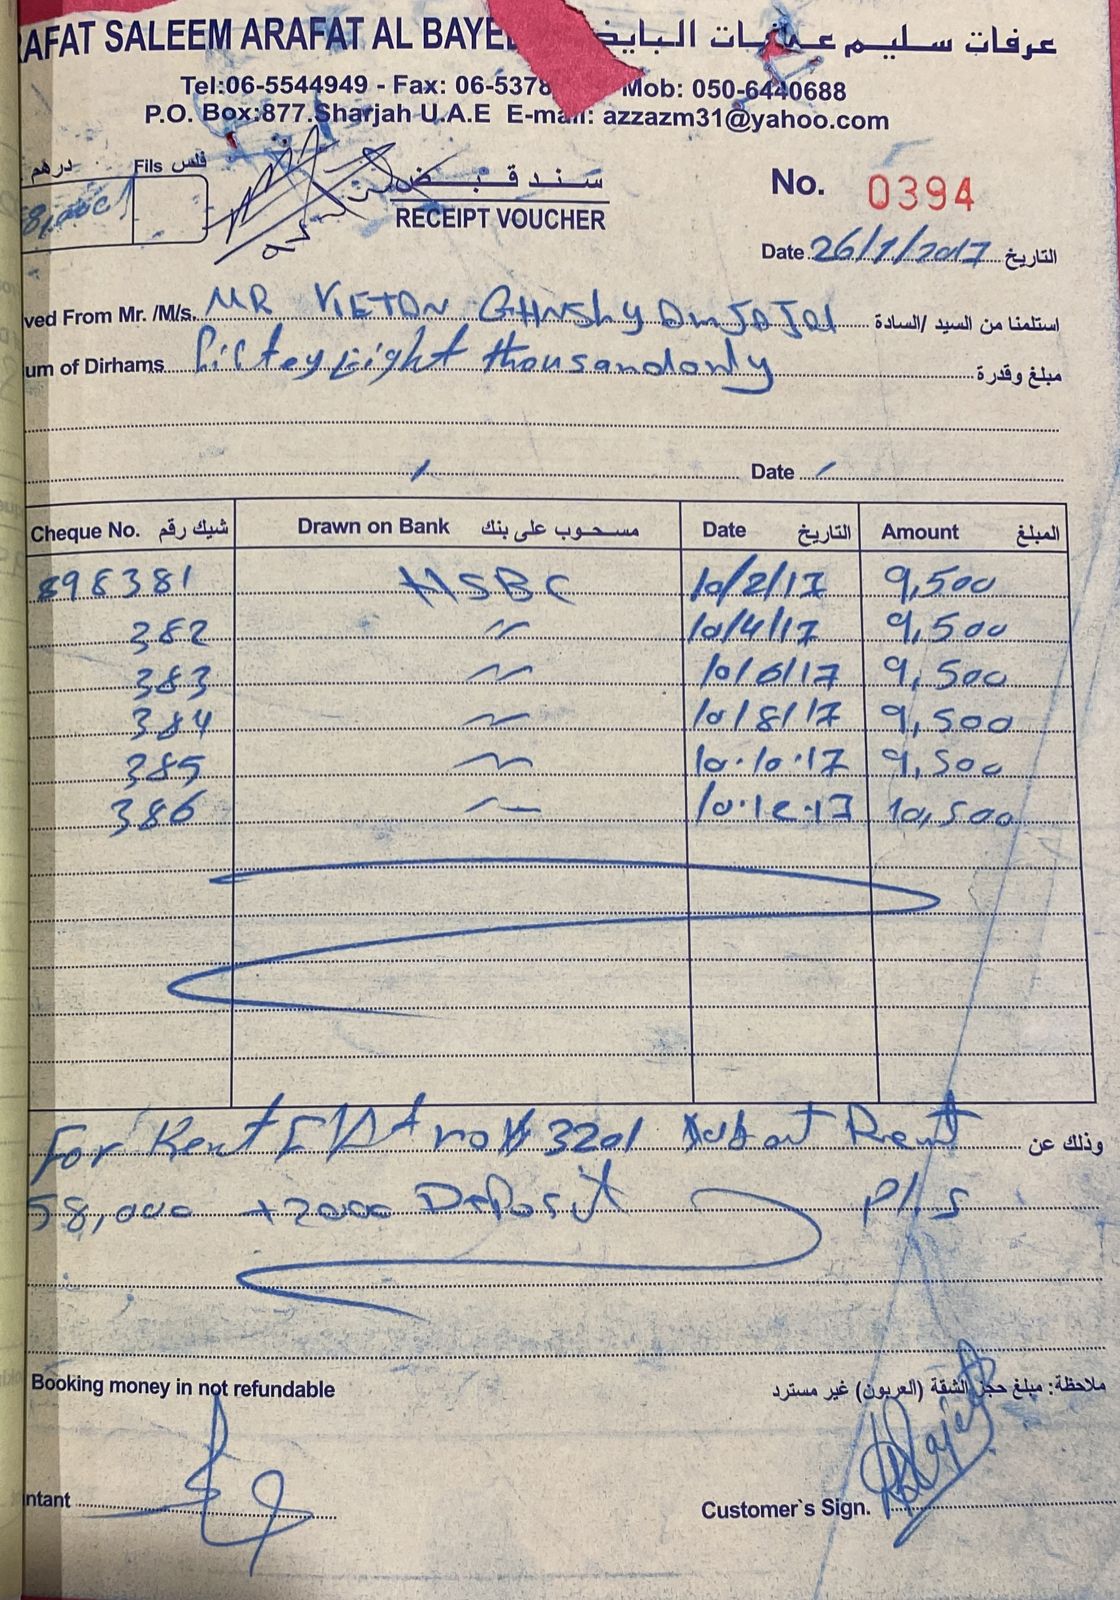 RAFAT SALEEM ARAFAT AL BAYE عرفات سليم عرفات البايض
Tel:06-5544949 - Fax: 06-5378 Mob: 050-6440688
P.O. Box:877.Sharjah U.A.E E-mail: azzazm31@yahoo.com
درهم Fils فلس
58,000
سند قبض
RECEIPT VOUCHER
No. 0394
Date 26/1/2017 التاريخ
ved From Mr. /M/s. MR استلمنا من السيد /السادة
um of Dirhams Fiftey Eight thousand only مبلغ وقدرة
Date
Cheque No. شيك رقم Drawn on Bank مسحوب على بنك Date التاريخ Amount المبلغ
898381 HSBC 10/2/17 9,500
382 〃 10/4/17 9,500
383 〃 10/6/17 9,500
384 〃 10/8/17 9,500
385 〃 10.10.17 9,500
386 〃 10.12.17 10,500
For Rent Flat no# 3201 Rent وذلك عن
58,000 +2000 Deposit
Booking money in not refundable ملاحظة: مبلغ حجز الشقة (العربون) غير مسترد
ntant Customer`s Sign.